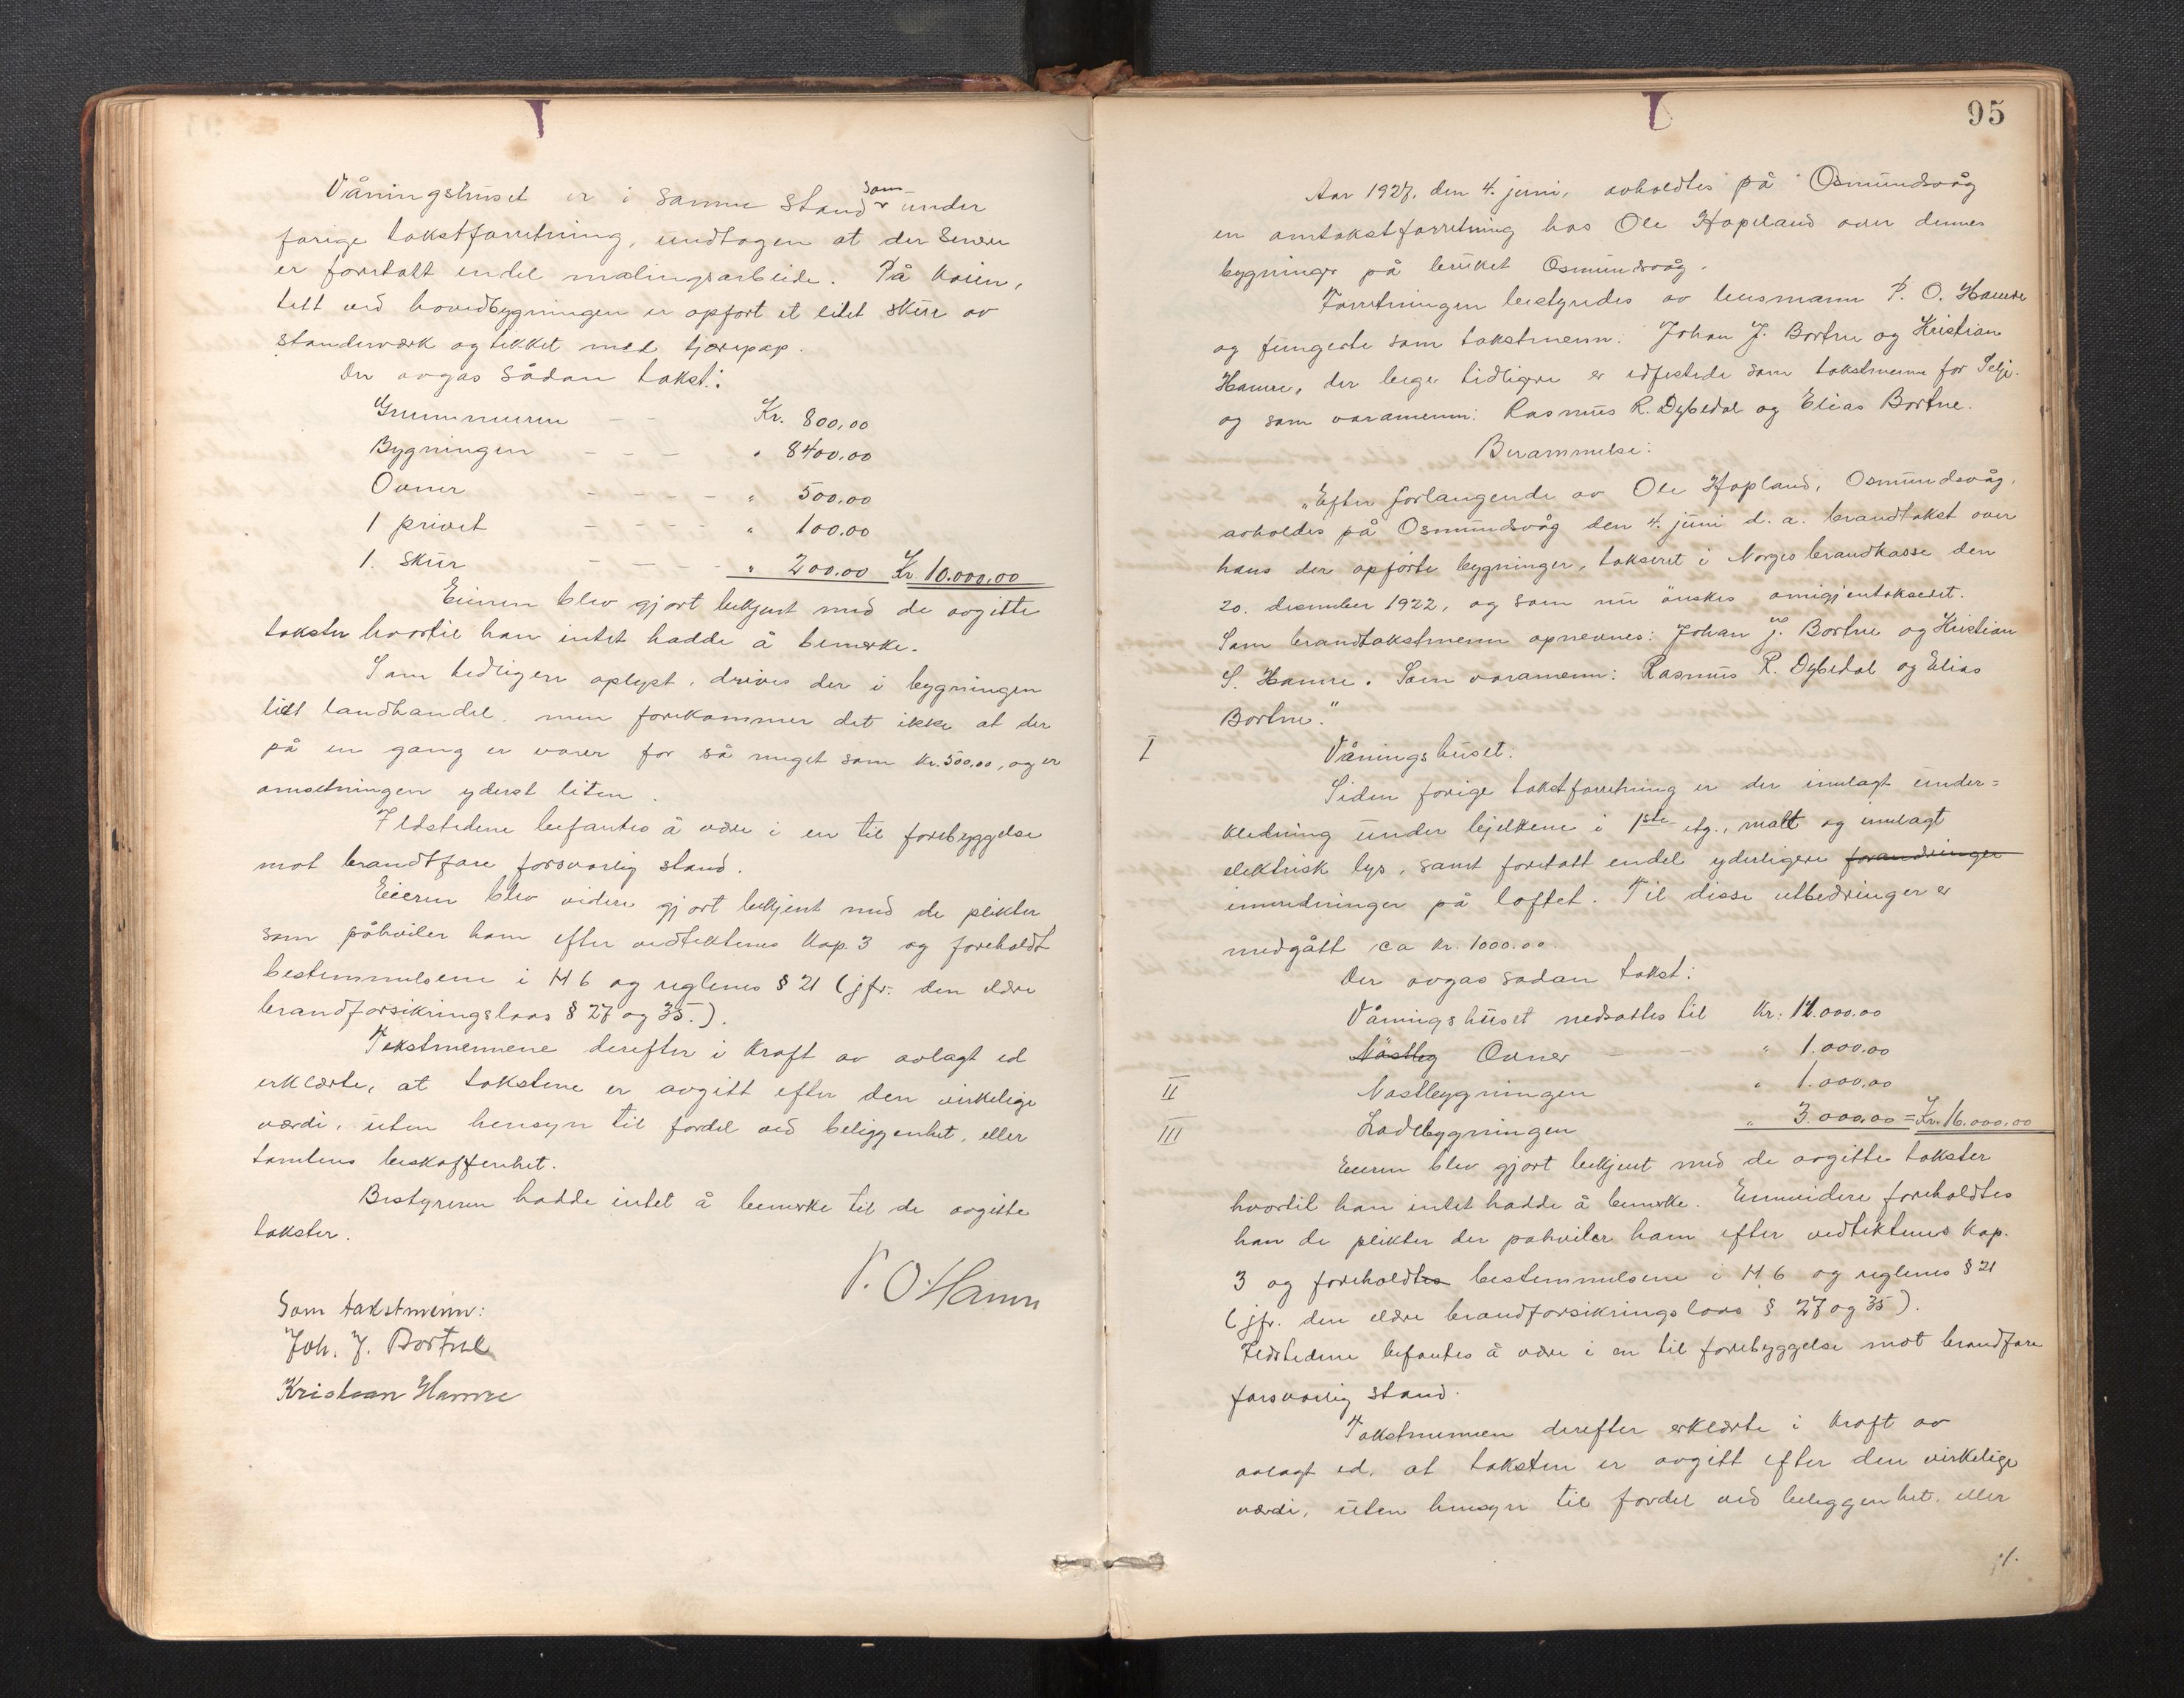 Våningshuset er i samme stand som under
forige takstforretning, undtagen at der senere
er foretatt endel malingsarbeide. På kaien,
tett ved hovedbygningen er opført et litet skur av
standerværk og tekket med tjærepap.
Der avgas sådan takst:
Grunnmuren - - Kr. 800,00
Bygningen - - - " 8400,00
Ovner - - - - " 500,00
1 privet - - - - " 100,00
1. skur - - - - " 200,00 Kr. 10.000,00
Eieren blev gjort bekjent med de avgitte
takster hvortil han intet hadde å bemerke.
Som tidligere oplyst, drives der i bygningen
litt landhandel, men forekommer det ikke at der
på en gang er varer for så meget som kr. 500,00, og er
omsetningen yderst liten.
Ildstedene befantes å være i en til forebyggelse
mot brandfare forsvarlig stand.
Eieren blev videre gjort bekjent med de plikter
som påhviler ham efter vedtektenes Kap. 3 og foreholdt
bestemmelsene i H 6 og reglenes § 21 (jfr. den eldre
brandforsikringslovs § 27 og 35.).
Takstmennene derefter i kraft av avlagt ed
erklærte, at takstene er avgitt efter den virkelige
værdi, uten hensyn til fordel ved beliggenhet, eller
tomtens beskaffenhet.
Bestyreren hadde intet å bemerke til de avgitte
takster.
P. O. Hamre
Som takstmenn:
Joh. J. Bortne
Kristian Hamre
95
Aar 1927, den 4. juni, avholdtes på Osmundsvåg
en omtakstforretning hos Ole Hopland over dennes
bygninger på bruket Osmundsvåg.
Forretningen bestyredes av lensmann P. O. Hamre
og fungerte som takstmenn: Johan J. Bortne og Kristian
Hamre, der begge tidligere er edfestede som takstmenn for Selje.
og som varamenn: Rasmus R. Dybedal og Elias Bortne.
Berammelse:
"Efter forlangende av Ole Hopland, Osmundsvåg,
avholdes på Osmundsvåg den 4. juni d. a. brandtakst over
hans der opførte bygninger, taksert i Norges brandkasse den
20. desember 1922, og som nu ønskes omigjentaksert.
Som brandtakstmenn opnevnes: Johan J. Bortne og Kristian
S. Hamre. Som varamenn: Rasmus R. Dybedal og Elias
Bortne."
I Våningshuset:
Siden forige takstforretning er der innlagt under=
kledning under bjelkene i 1ste etg., malt og innlagt
elektrisk lys, samt foretatt endel yderligere forandringer
innredninger på loftet. Til disse utbedringer er
medgått ca kr. 1000.00.
Der avgas sådan takst:
Våningshuset nedsattes til Kr. 11.000,00
Nåstbyg Ovner - - " 1.000,00
II Nåstbygningen " 1.000,00
III Ladebygningen " 3.000,00 = Kr. 16.000,00
Eieren blev gjort bekjent med de avgitte takster
hvortil han intet hadde å bemerke. Ennvidere foreholdtes
han de plikter der påhviler ham efter vedtektenes Kap.
3 og foreholdtes bestemmelsene i H 6 og reglenes § 21
(jfr. den eldre brandforsikringslovs § 27 og 35).
Ildstedene befantes å være i en til forebyggelse mot brandfare
forsvarlig stand.
Takstmennene derefter erklærte i kraft av
avlagt ed, at taksten er avgitt efter den virkelige
værdi, uten hensyn til fordel ved beliggenhet, eller
./.